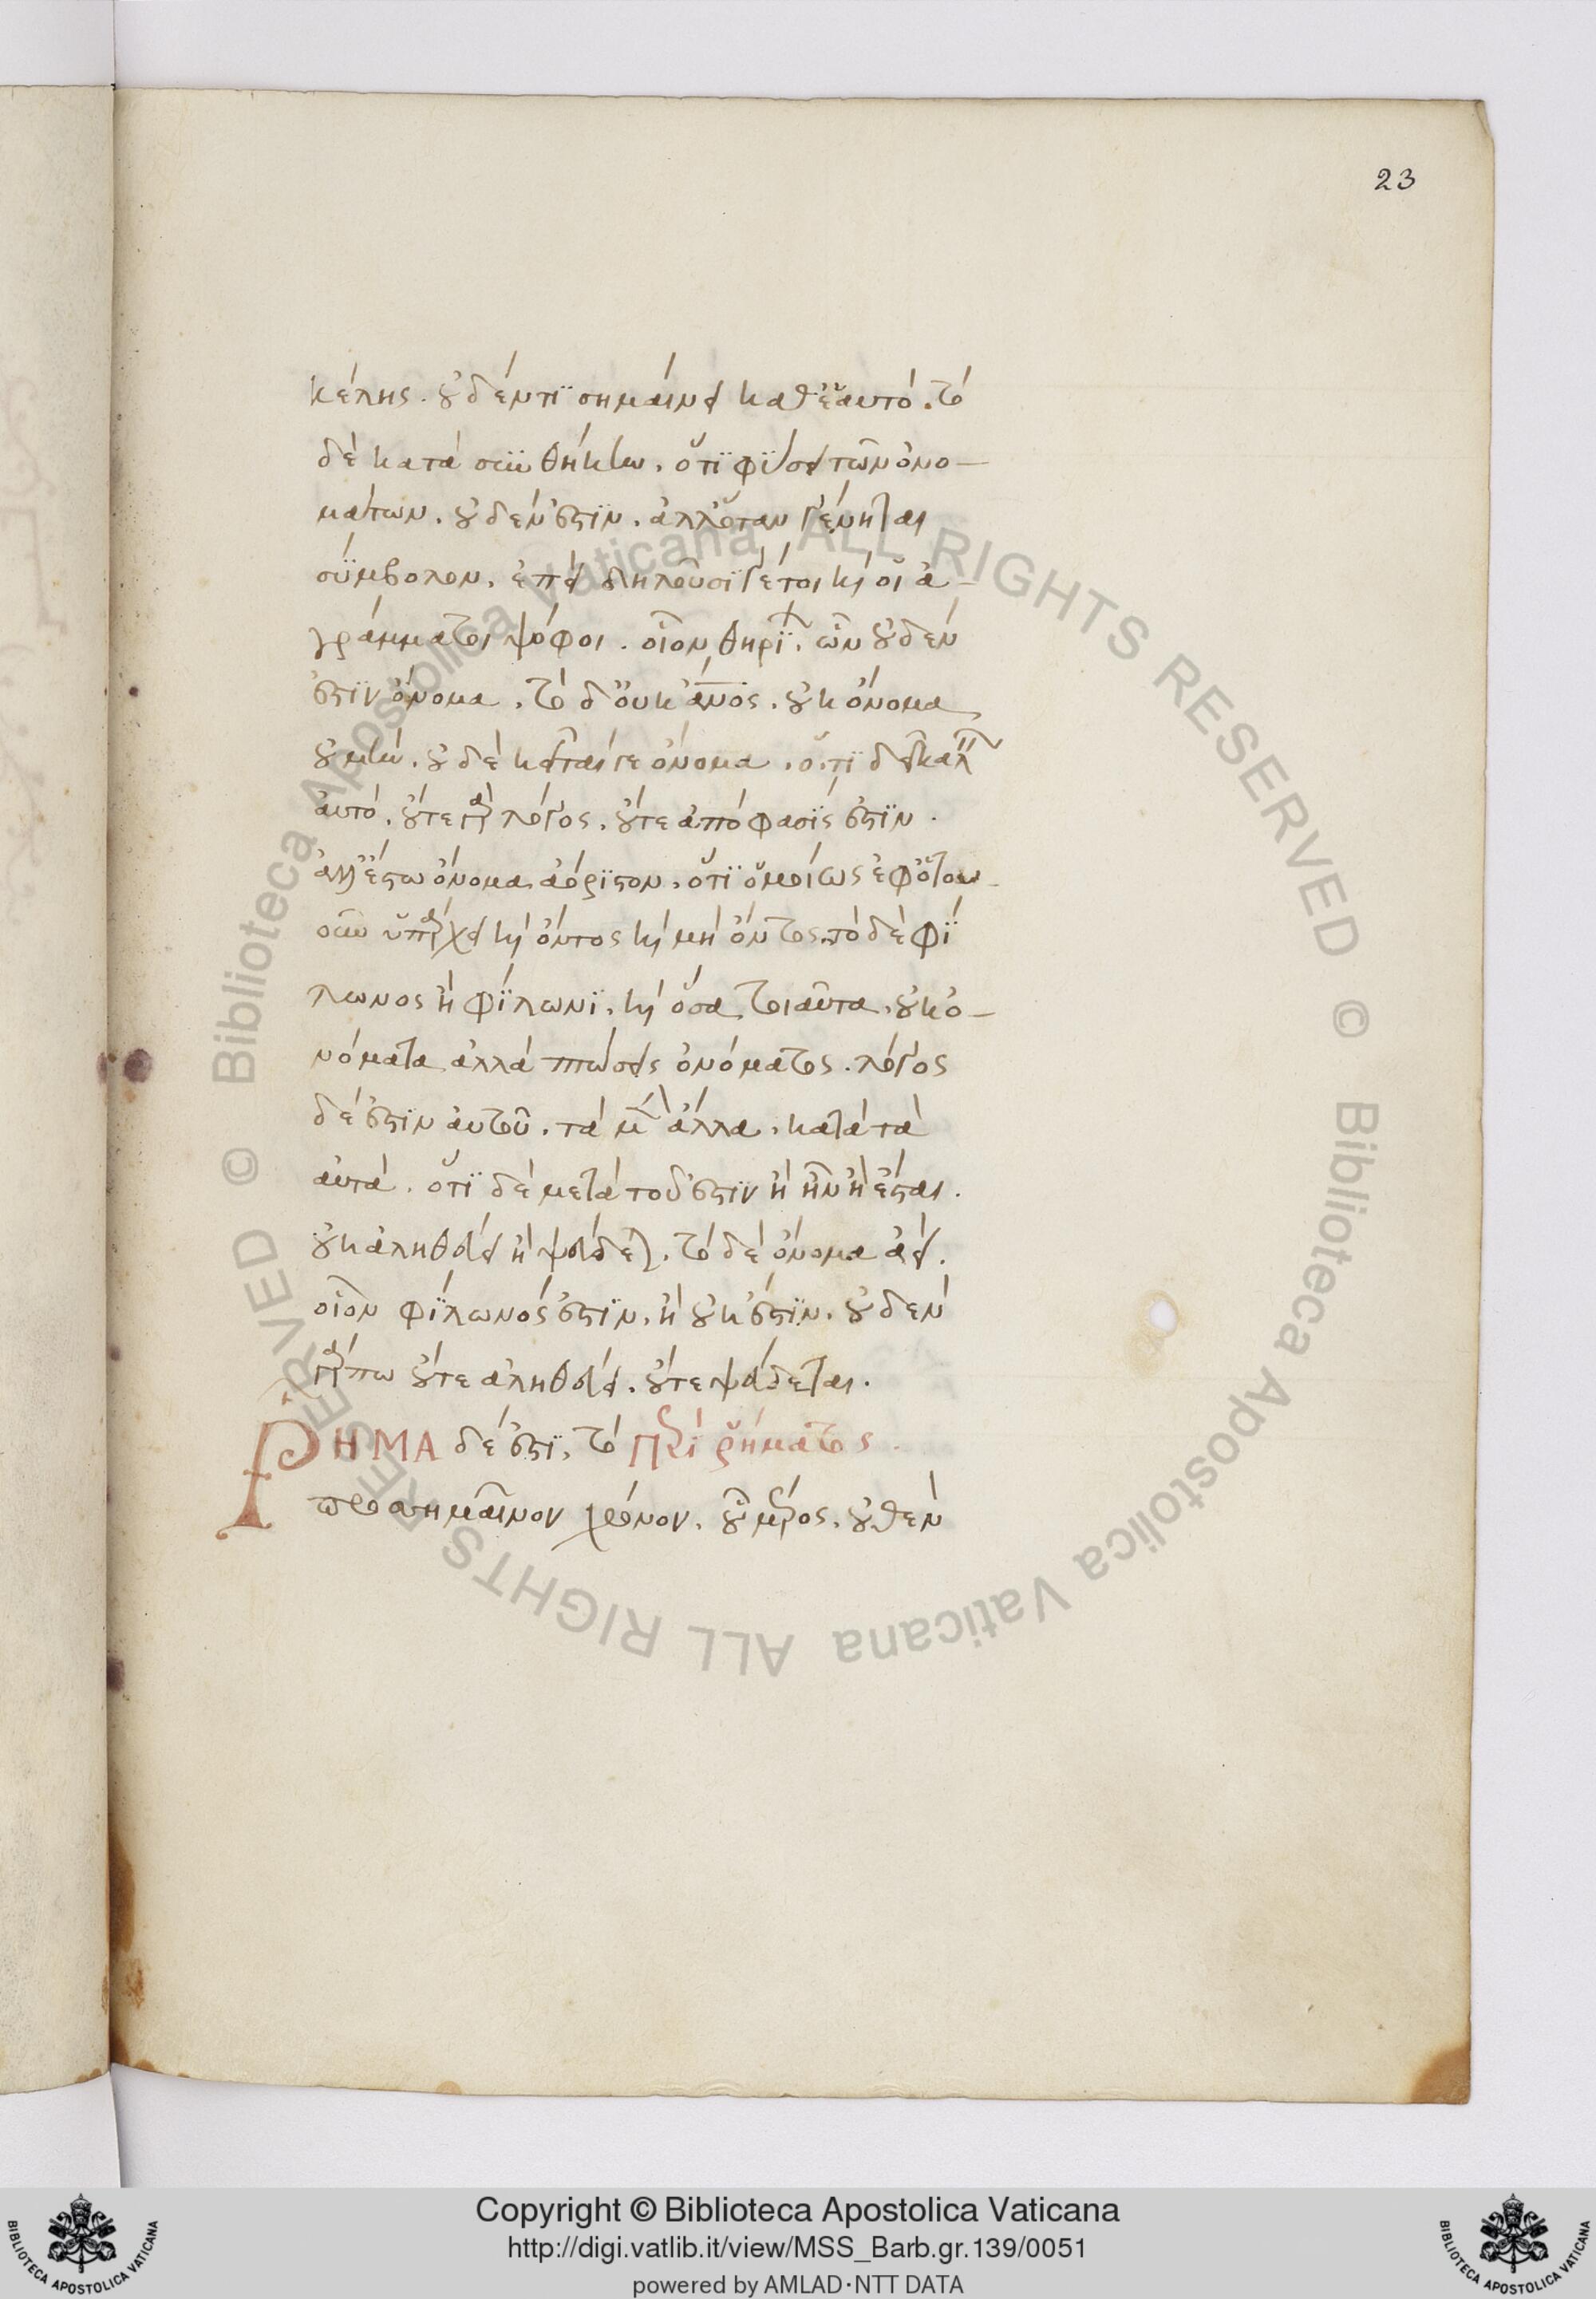 23
κέλης. οὐδέν τι σημαίνει καθ' ἑαυτό. τὸ
δὲ κατὰ συνθήκην. ὅτι φύσει τῶν ὀνο-
μάτων. οὐδέν ἐστιν. ἀλλ' ὅταν γένηται
σύμβολον. ἐπεὶ δηλοῦσί γέ τοι καὶ οἱ ἀ-
γράμματοι ψόφοι. οἷον θηρί. ὧν οὐδέν
ἐστιν ὄνομα. τὸ δ' οὐκ ἄνος. οὐκ ὄνομα
οὐ μὴν. οὐδὲ κεῖταί γε ὄνομα. ὅ,τι δεῖ καλ
αὐτό. οὔτε γὰρ λόγος. οὔτε ἀπόφασίς ἐστιν.
ἀλλ' ἔστω ὄνομα ἀόριστον. ὅτι ὁμοίως ἐφ' ὁτου-
οῦν ὑπάρχει καὶ ὄντος καὶ μὴ ὄντος. τὸ δὲ φί
λωνος ἢ φίλωνι. καὶ ὅσα τοιαῦτα. οὐκ ὀ-
νόματα ἀλλὰ πτώσεις ὀνόματος. λόγος
δέ ἐστιν αὐτοῦ. τὰ μὲν ἄλλα. κατὰ τὰ
αὐτά. ὅτι δὲ μετὰ τοῦ ἐστὶν ἢ ἦν ἢ ἔσται.
οὐκ ἀληθεύει ἢ ψεύδεται. τὸ δὲ ὄνομα ἀεί.
οἷον φίλωνός ἐστιν. ἢ οὐκ ἔστιν. οὐδὲν
γάρ πω οὔτε ἀληθεύει. οὔτε ψεύδεται.
ῬΗΜΑ δέ ἐστι. τὸ περὶ ῥήματος.
προσημαῖνον χρόνον. οὗ μέρος. οὐθὲν
Copyright © Biblioteca Apostolica Vaticana
http://digi.vatlib.it/view/MSS_Barb.gr.139/0051
powered by AMLAD·NTT DATA
BIBLIOTECA APOSTOLICA VATICANA
BIBLIOTECA APOSTOLICA VATICANA
© Biblioteca Apostolica Vaticana ALL RIGHTS RESERVED © Biblioteca Apostolica Vaticana ALL RIGHTS RESERVED